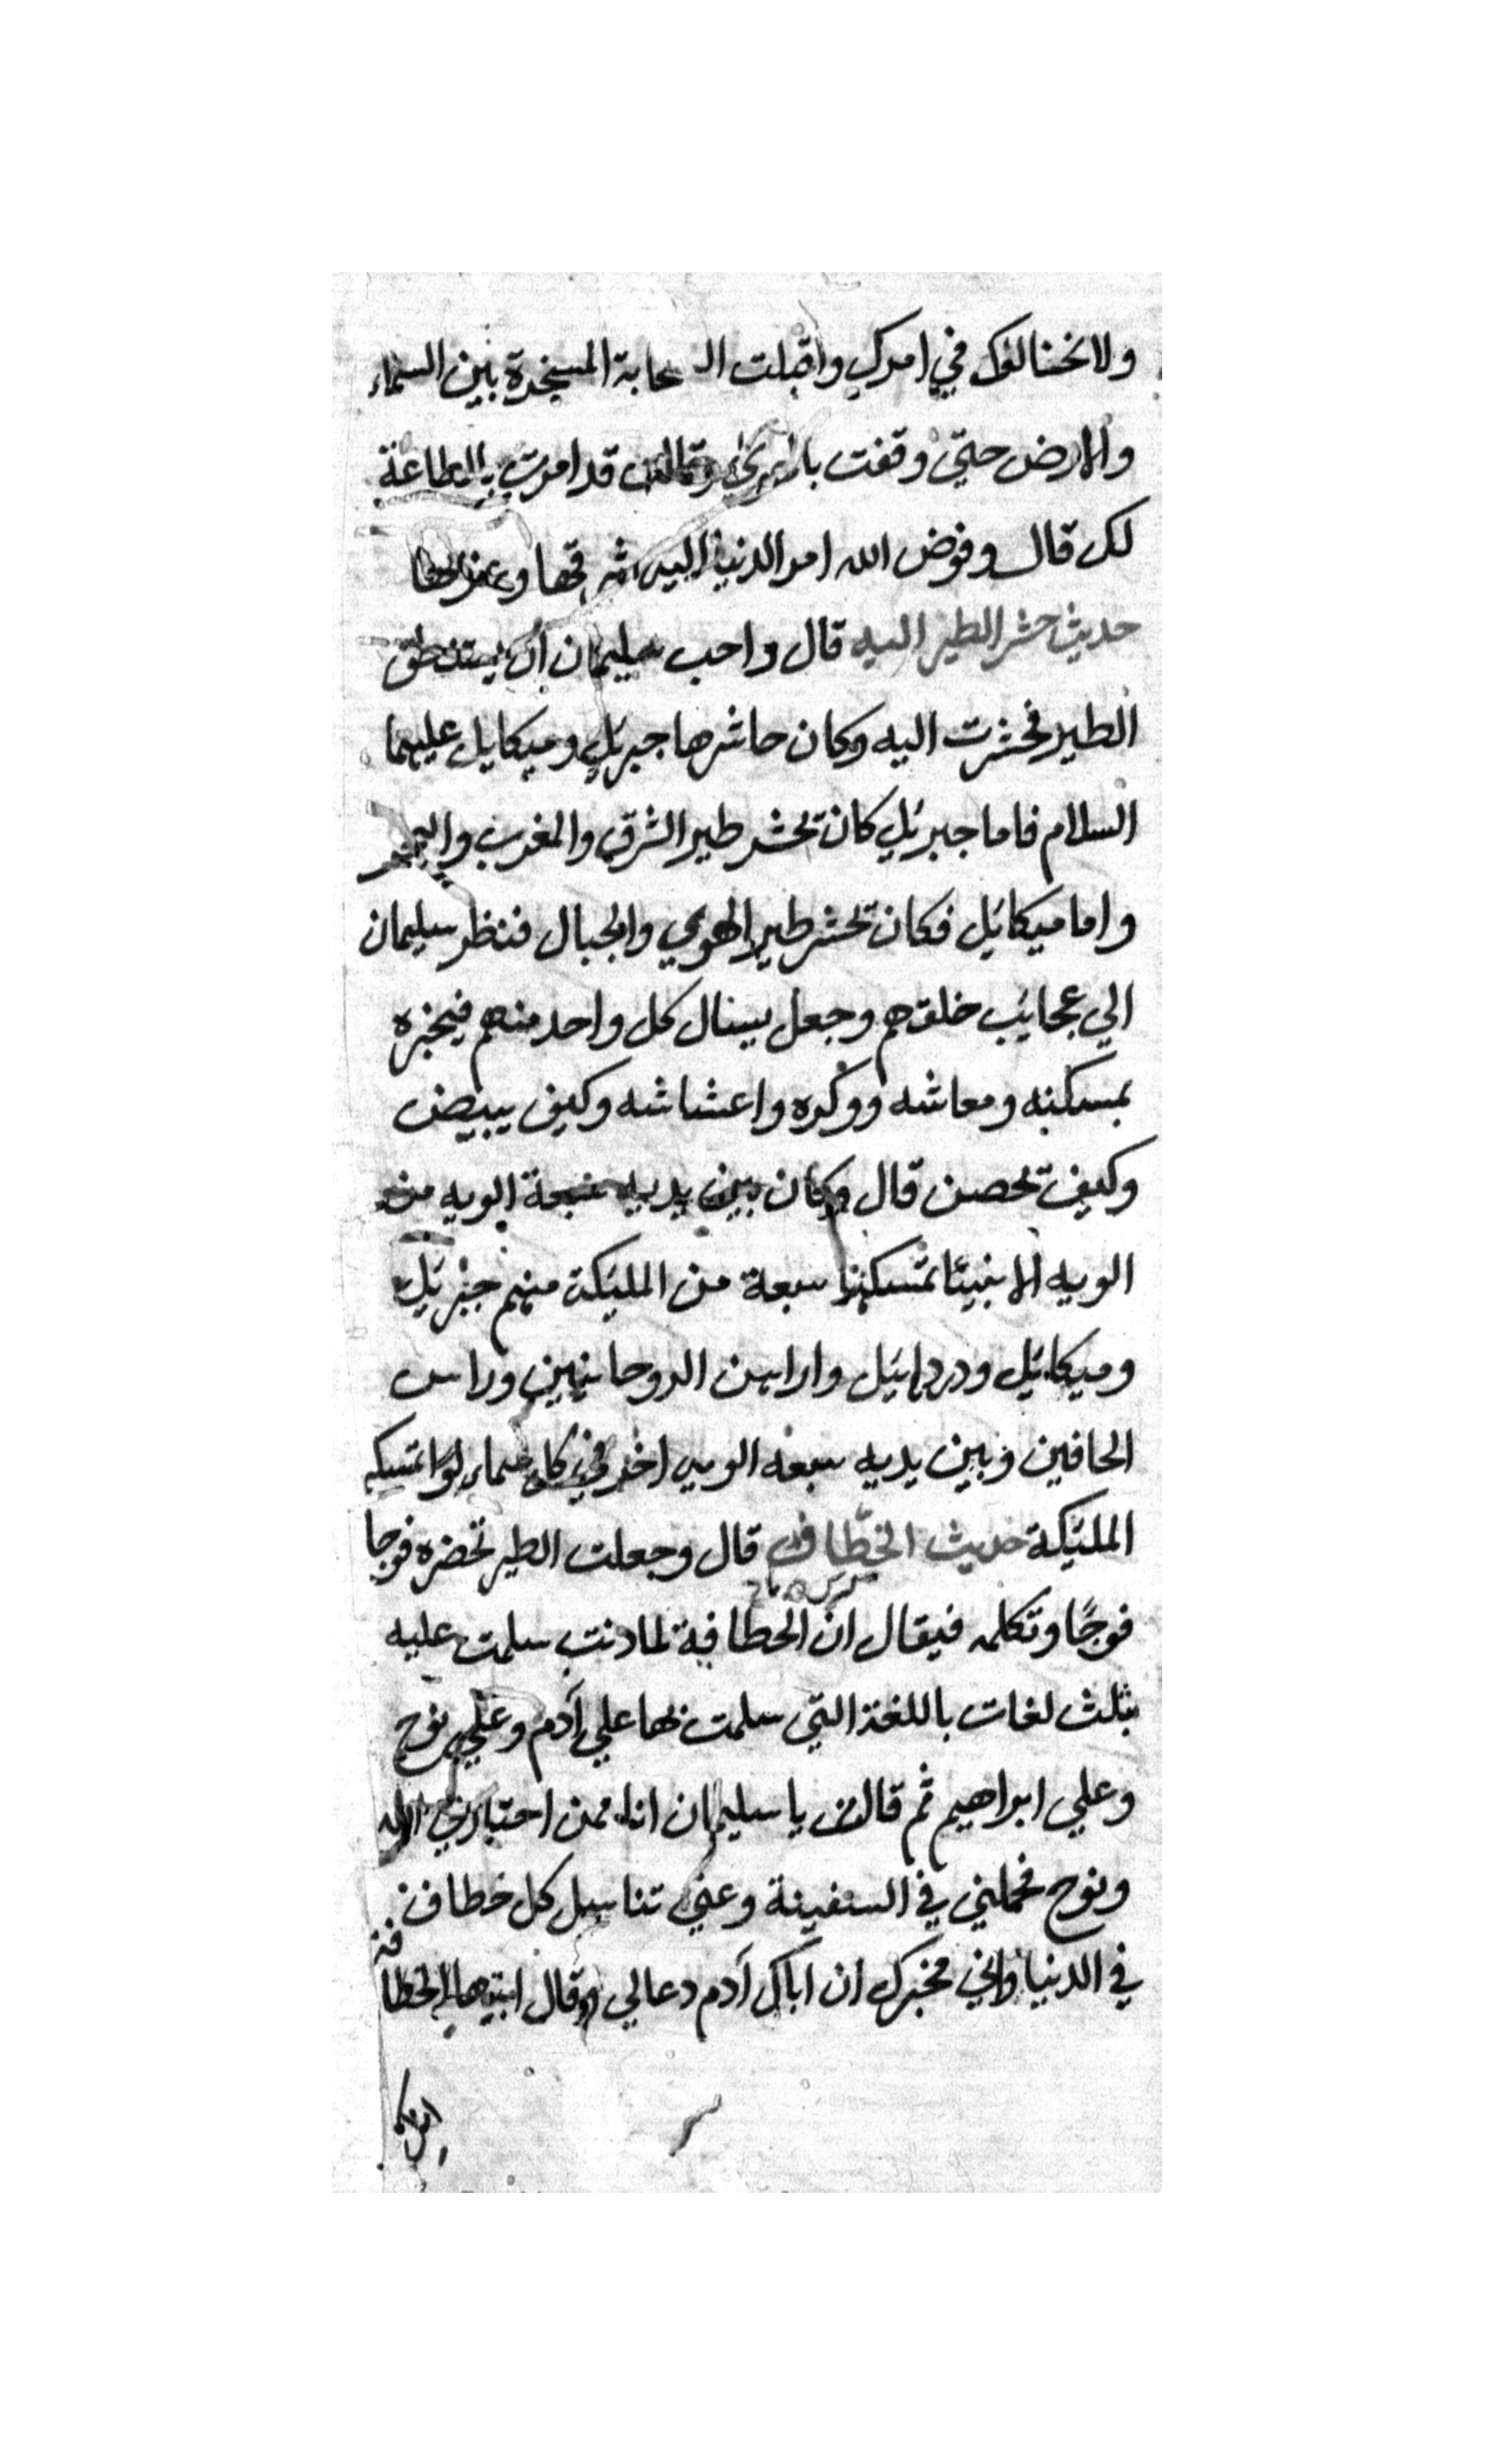 ولا نخالفك في امرك واقبلت السحابة المسخرة بين السماء
والارض حتي وقفت وقالت قد امرت بالطاعة
لك قال وفوض الله امر الدنيا اليه شرقها وغربها
حديث حشر الطير اليه قال واحب سليمان ان يستنطق
الطير فحشرت اليه وكان حاشرها جبريل وميكايل عليهما
السلام فاما جبريل كان تحشر طير الشرق والمغرب والبحر
واما ميكائيل فكان تحشر طير الهوي والجبال فنظر سليمان
الي عجايب خلقهم وجعل يسال كل واحد منهم فيخبره
بمسكنه ومعاشه ووكره واعشاشه وكيف يبيض
وكيف تحصن قال وكان بين يديه سبعة الويه من
الويه الانبيا تمسكها سبعة من المليكة منهم جبريل
وميكائيل ودردائيل الروحانيين وراس
الحافين وبين يديه سبعه الويه اخر في كل سماء لوا تمسكه
المليكة حديث الخطاف قال وجعلت الطير تحضره فوجا
فوجا وتكلمه فيقال ان الخطافة لما دنت سلمت عليه
بثلث لغات باللغة التي سلمت بها علي آدم وعلي نوح
وعلي ابراهيم ثم قالت يا سليمان انا ممن اختارني الله
ونوح فحملني في السفينة وعني تناسل كل خطاف
في الدنيا واني مخبرك ان اباك آدم دعا لي وقال ايتها الخطافة